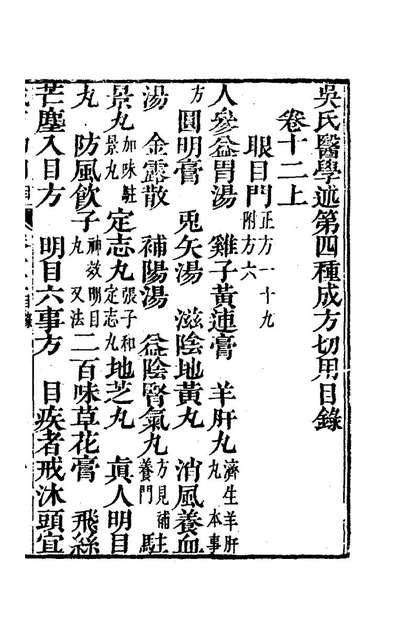 吳氏醫學述第四種成方切用目錄
卷十二上
眼目門正方一十九附方六
人參益胃湯 雞子黃連膏 羊肝丸濟生羊肝丸 本事
方 圓明膏 兎矢湯 滋陰地黃丸 消風養血
湯 金露散 補陽湯 益陰腎氣丸方見補養門 駐
景丸加味駐景丸 定志丸張子和定志丸 地芝丸 眞人明目
丸 防風飲子神效明目丸 又法 二百味草花膏 飛絲
芒塵入目方 明目六事方 目疾者戒沐頭宜